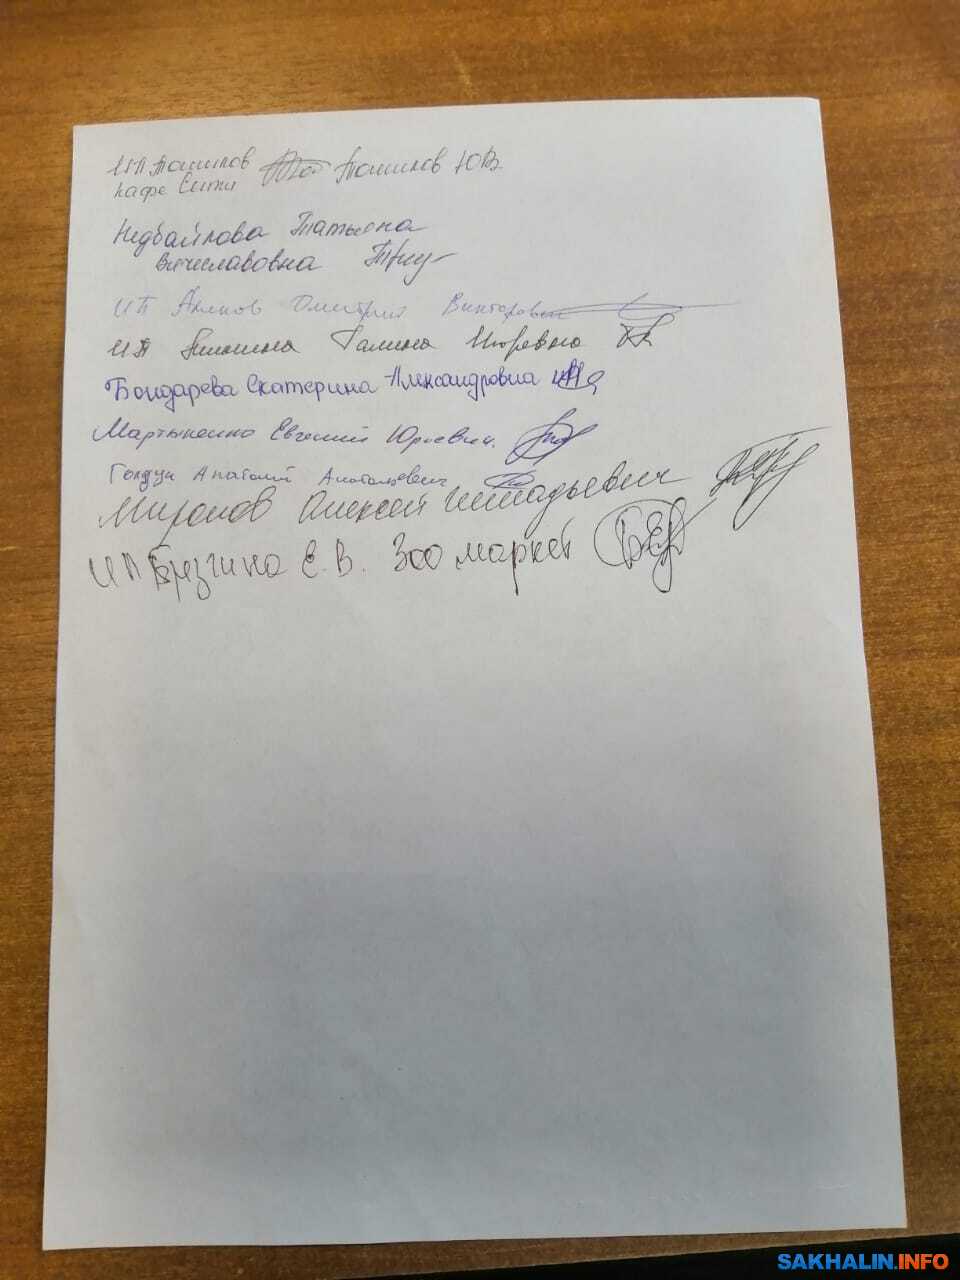 ИП Томилов Томилов Ю.В.
Кафе Сити
Недбайлова Татьяна
Вячеславовна
ИП Дмитрий Викторович
ИП Галина Игоревна
Бондарева Екатерина Александровна
Мартыненко Евгений Юрьевич
Анатолий Анатольевич
Миронов Алексей Геннадьевич
ИП Брязгина Е.В. Зоо маркет
SAKHALIN.INFO